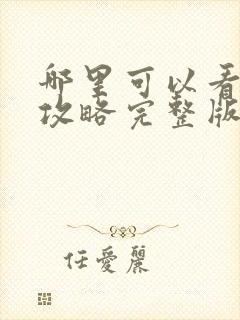 哪里可以看
攻略完整版
任愛麗